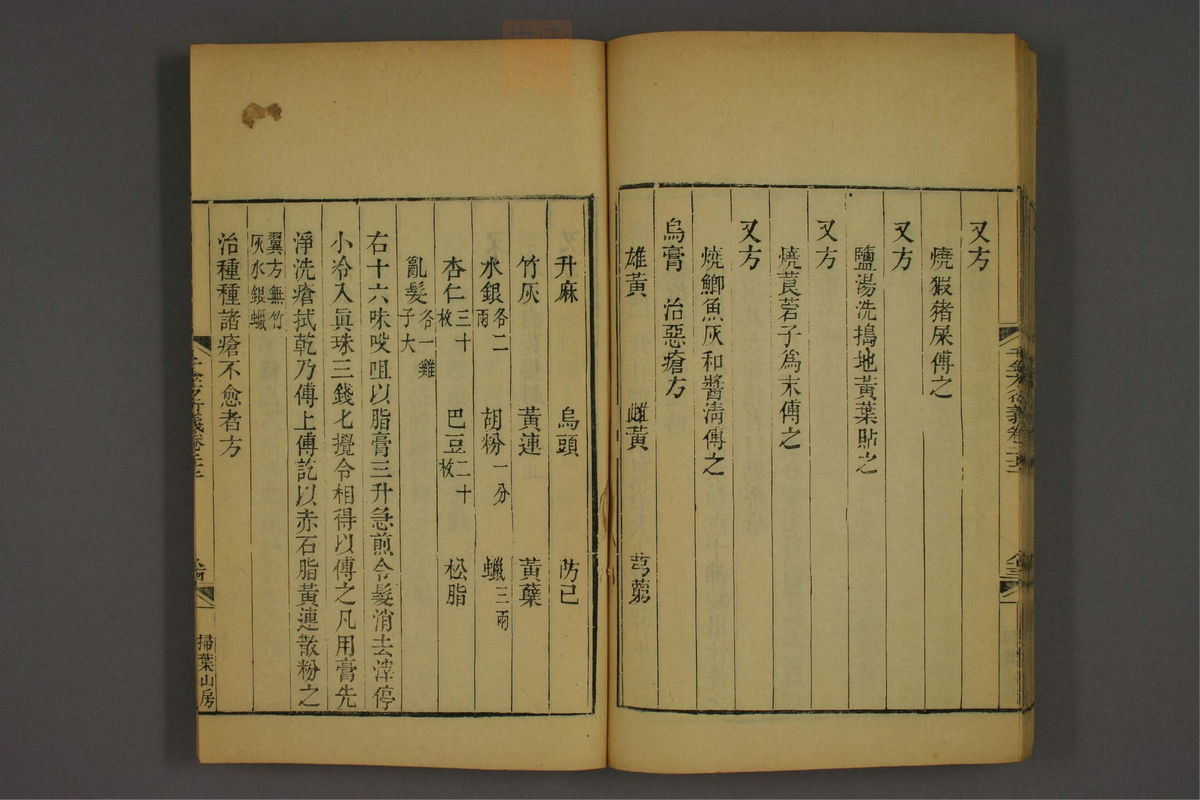 又方
燒豭猪屎傅之
又方
鹽湯洗搗地黃葉貼之
又方
燒莨菪子爲末傅之
又方
燒鯽魚灰和醬淸傅之
烏膏 治惡瘡方
雄黃 雌黃 芎藭
升麻 烏頭 防己
竹灰 黃連 黃蘗
水銀各二兩 胡粉一分 蠟三兩
杏仁三十枚 巴豆二十枚 松脂
亂髮各一雞子大
右十六味㕮咀以脂膏三升急煎令髮消去滓停
小冷入眞珠三錢匕攪令相得以傅之凡用膏先
淨洗瘡拭乾乃傅上傅訖以赤石脂黃連散粉之
翼方無竹
灰水銀蠟
治種種諸瘡不愈者方
掃葉山房